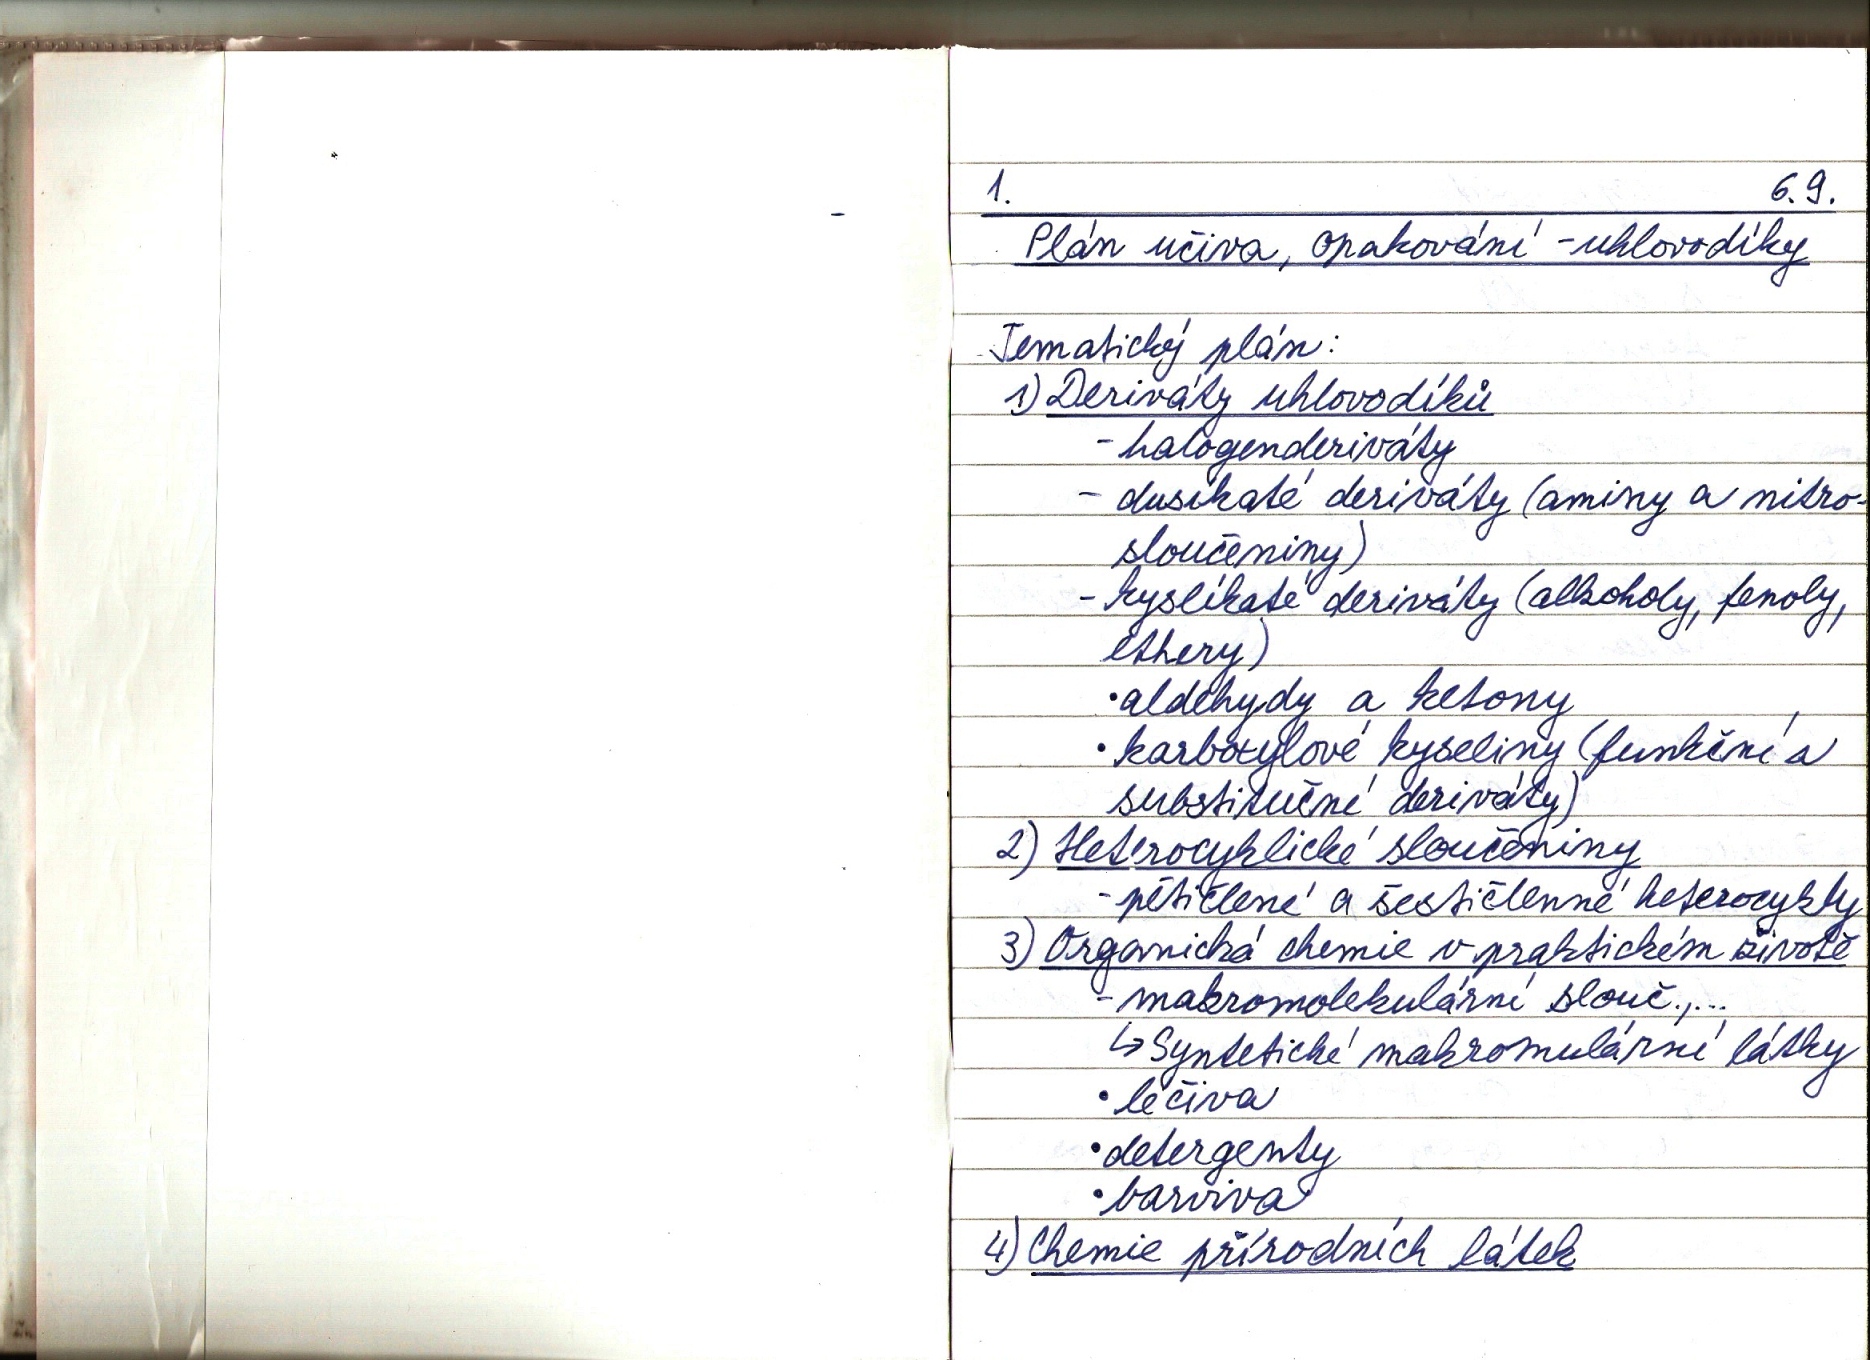 1. 6.9.
Plán učiva, opakování - uhlovodíky
Tematický plán:
1) Deriváty uhlovodíků
- halogenderiváty
- dusíkaté deriváty (aminy a nitro-
sloučeniny)
- kyslíkaté deriváty (alkoholy, fenoly,
ethery)
• aldehydy a ketony
• karboxylové kyseliny (funkční a
substituční deriváty)
2) Heterocyklické sloučeniny
- pětičlené a šestičlenné heterocykly
3) Organická chemie v praktickém životě
- makromolekulární slouč.,...
↳ Syntetické makromulární látky
• léčiva
• detergenty
• barviva
4) Chemie přírodních látek